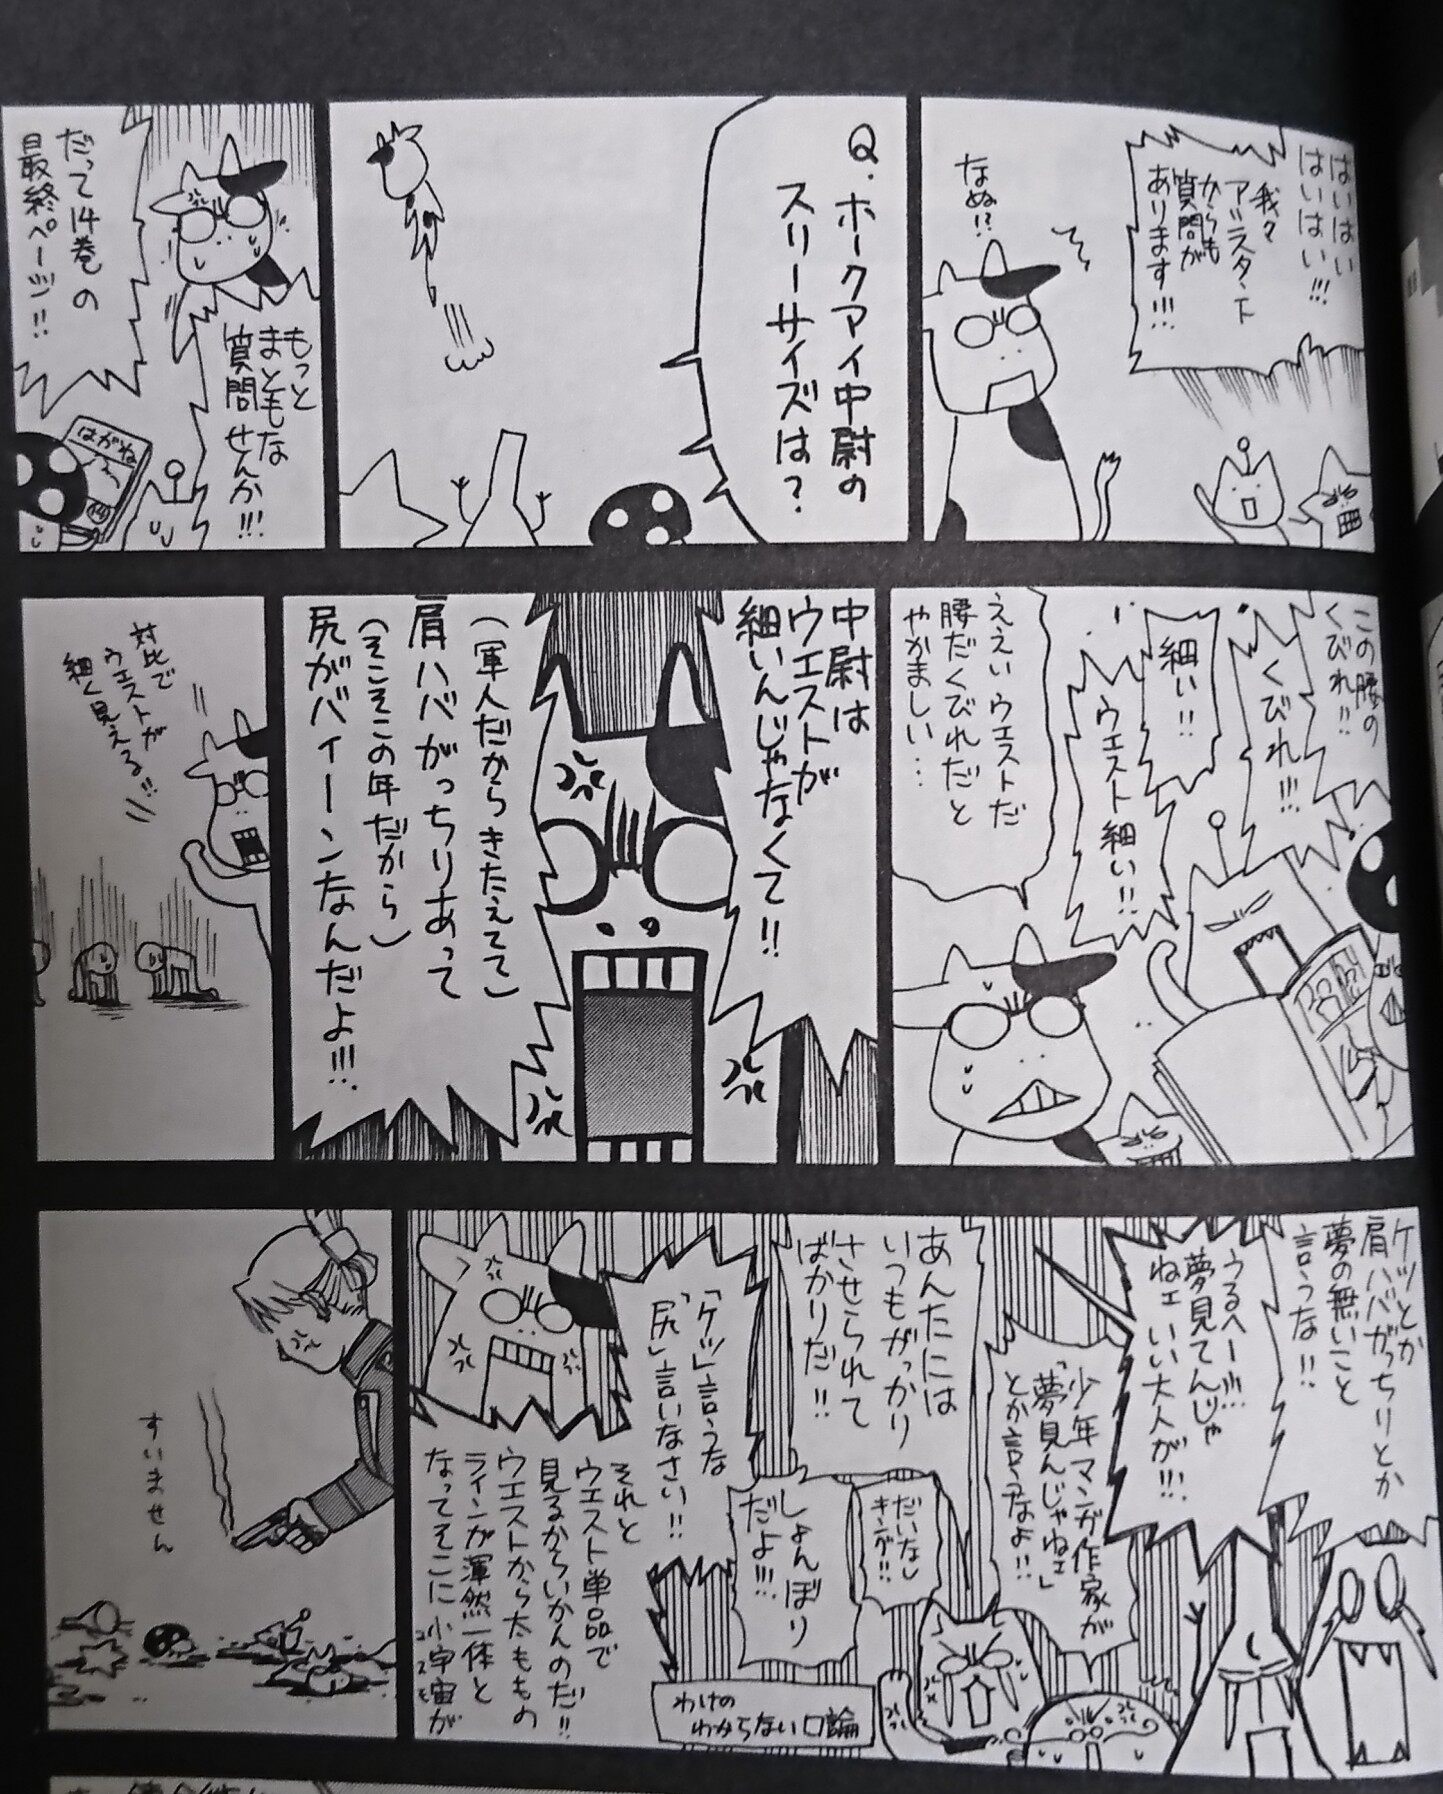 はいはい
はいはい!!!
我々
アシスタント
からも
質問が
あります!!!
なぬ!?
Q.ホークアイ中尉の
スリーサイズは?
もっと
まともな
質問せんか!!!
だって14巻の
最終ページ!!
はがね
14
この腰の
くびれ!!
くびれ!!!
細い!!
ウエスト細い!!
ええい ウエストだ
腰だくびれだと
やかましい…
中尉は
ウエストが
細いんじゃなくて!!
(軍人だからきたえてて)
肩ハバがっちりあって
(そこそこの年だから)
尻がバイーンなんだよ!!!
対比で
ウエストが
細く見える!!
ケツとか
肩ハバがっちりとか
夢の無いこと
言うな!!
うるへー!!!
夢見てんじゃ
ねェ いい大人が!!!
少年マンガ作家が
「夢見んじゃねェ」
とか言うなよ!!
あんたには
いつもがっかり
させられて
ばかりだ!!
だいなし
キング!!
しょんぼり
だよ!!!
「ケツ」言うな
「尻」言いなさい!!
それと
ウエスト単品で
見るからいかんのだ!!
ウエストから太ももの
ラインが渾然一体と
なってそこに小宇宙が
コスモ
わけの
わからない口論
すいません